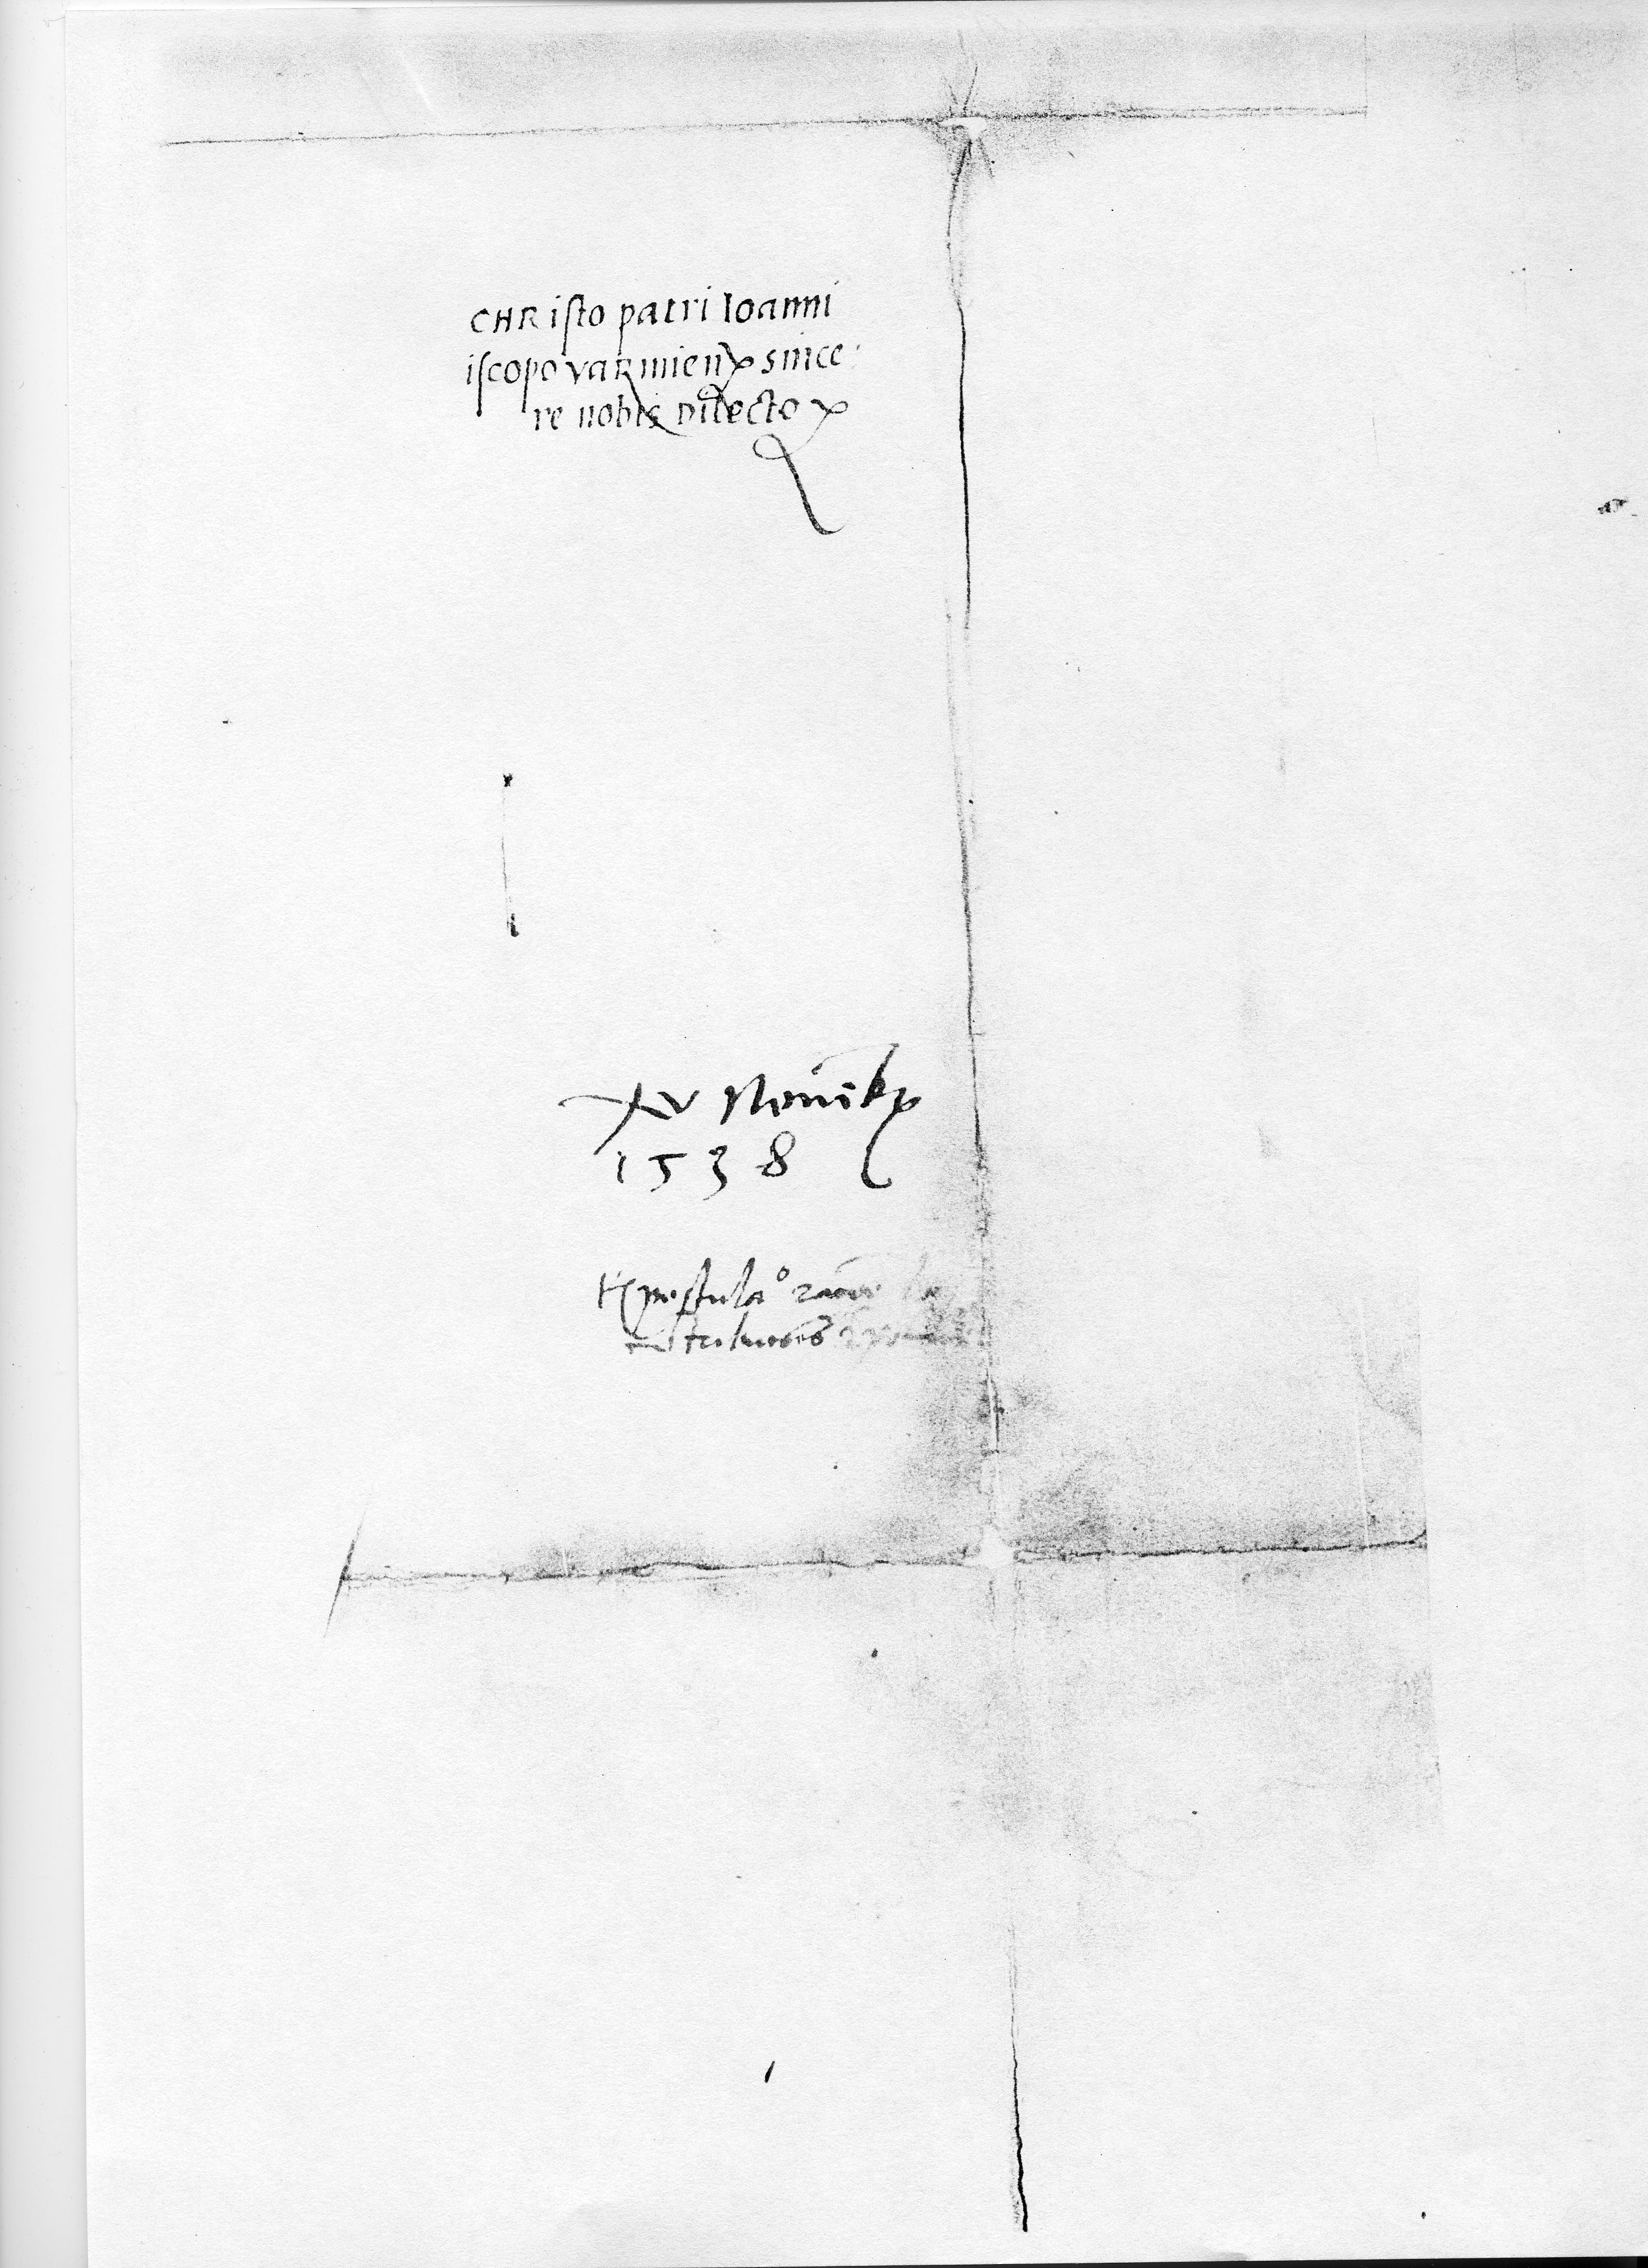 CHRisto patri Ioanni
iscopo varmien since
re nobis Dilecto
xv Novemb
1538
Expostula